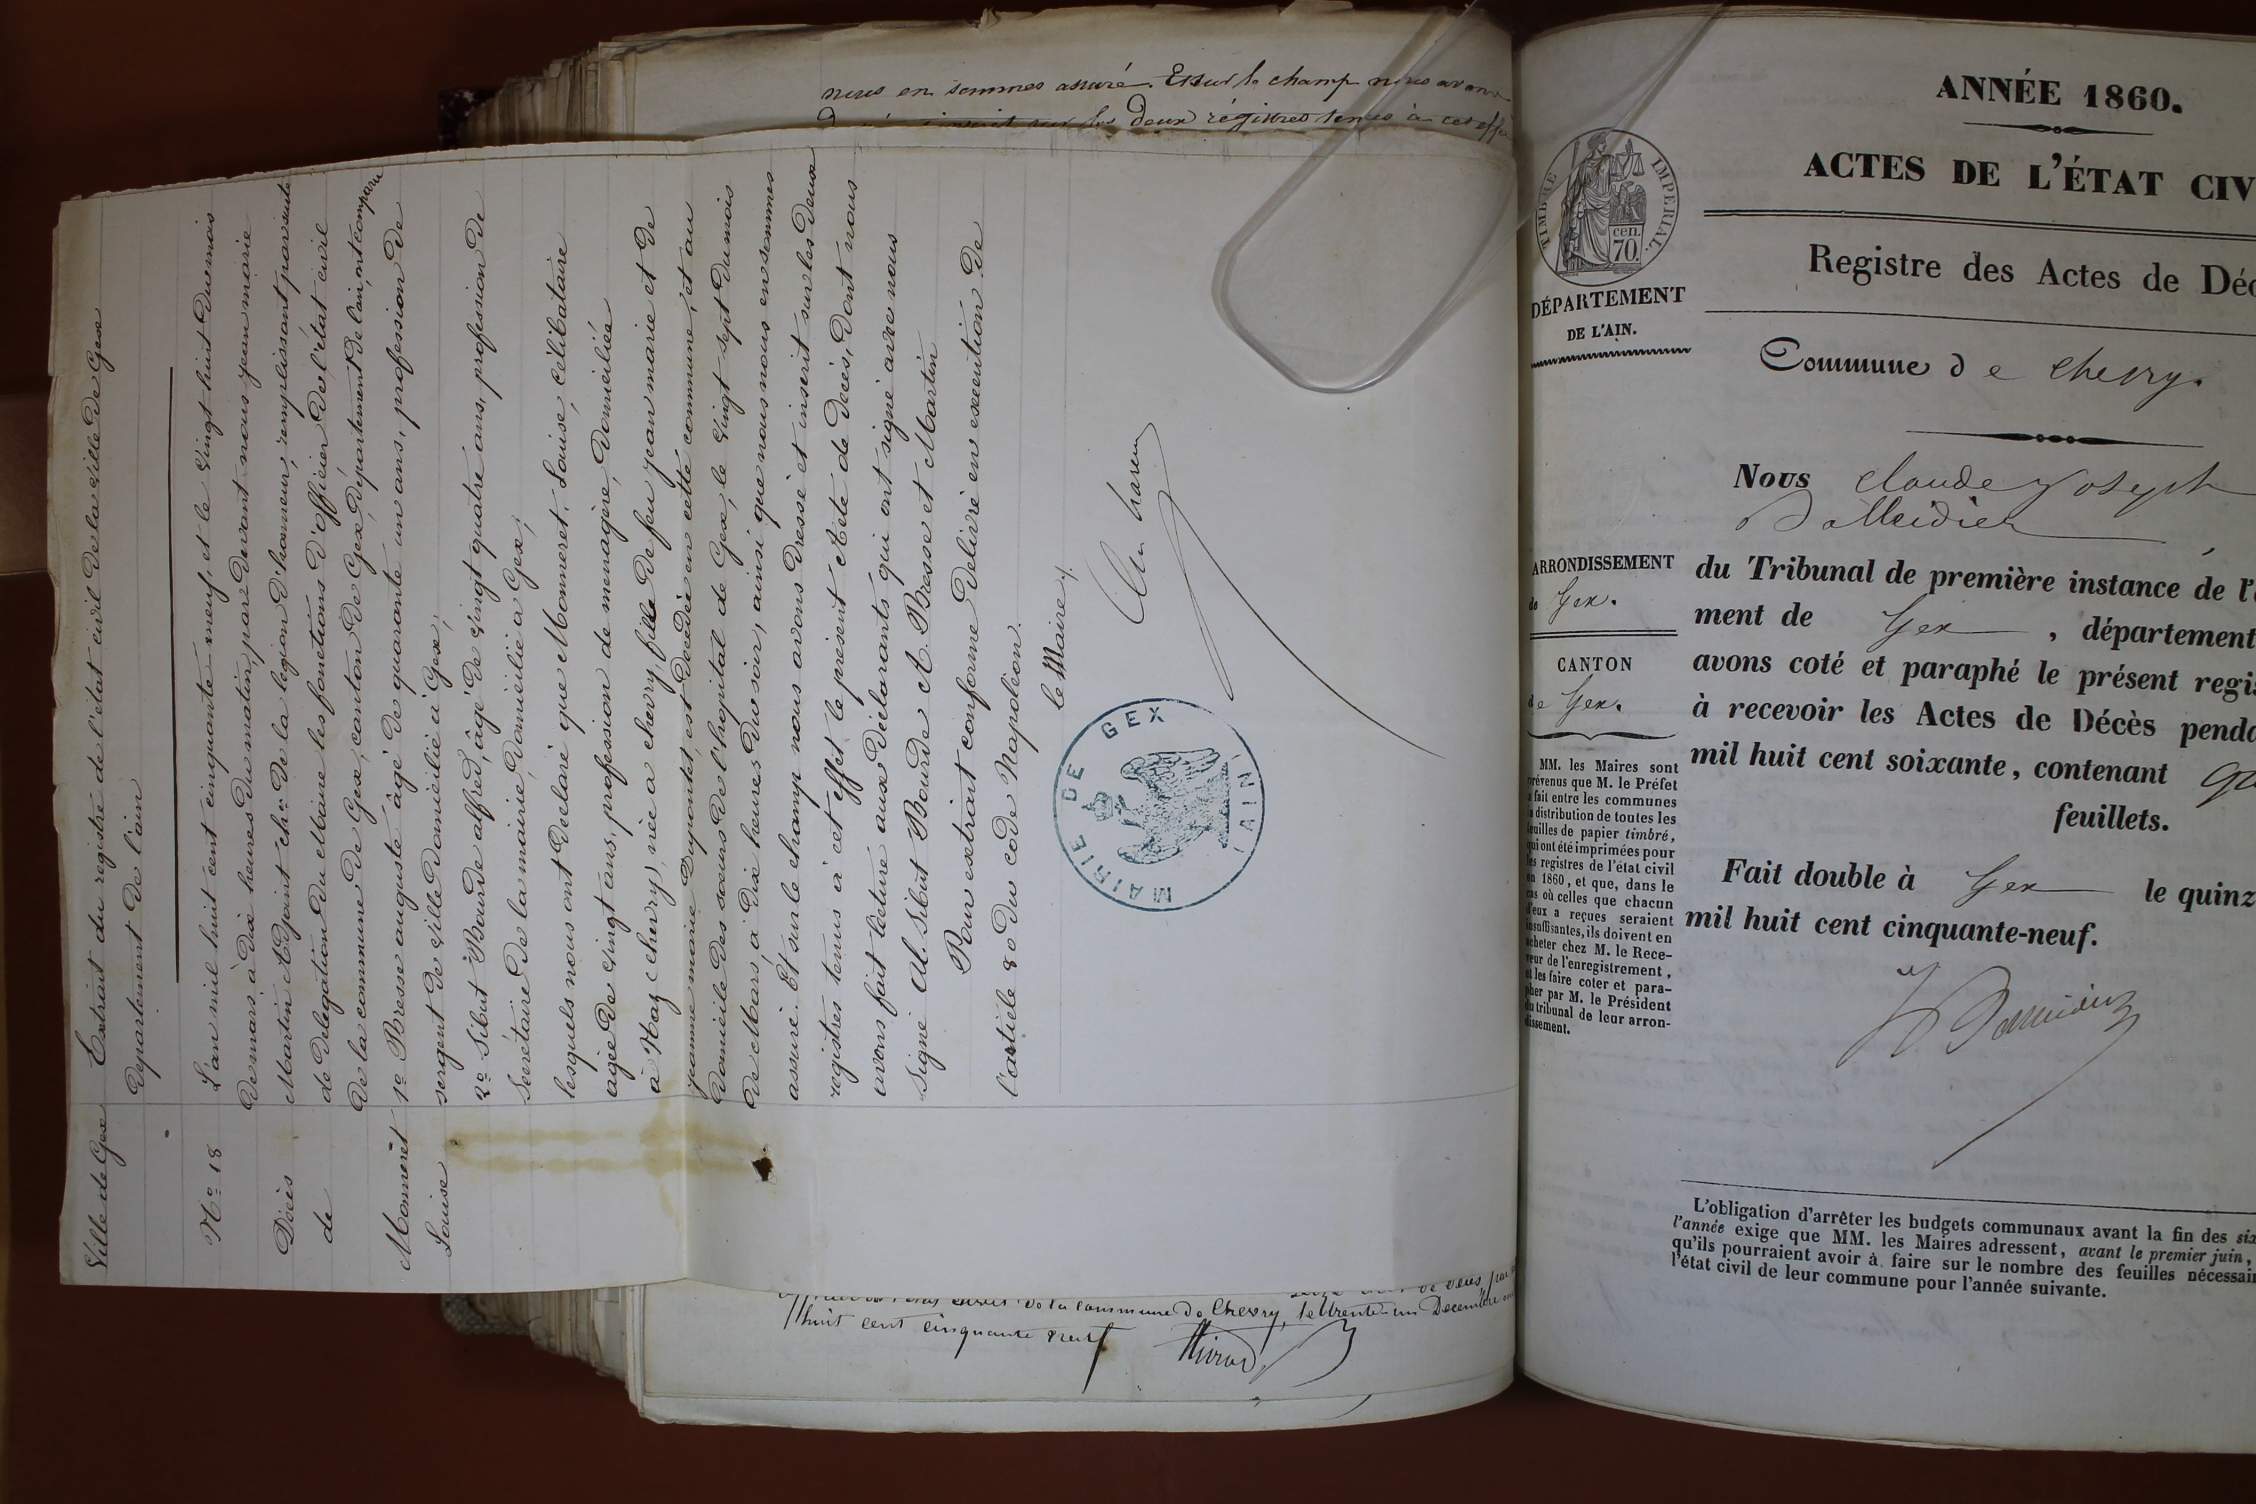 nous en sommes assuré. Et sur le champ nous avons
deux régistres tenus à cet effe
Ville de Gex
Extrait du registre de l'état civil de la ville de Gex
département de l'ain
No 18
Décès
de
Monneret
Louise
L'an mil huit cent cinquante neuf, et le vingt huit du mois
de mars, à dix heures du matin, par devant nous jean marie
Martin Adjoint cher de la légion d'honneur, remplissant par suite
de délégation du Maire les fonctions d'officier de l'état civil
de la commune de Gex, canton de Gex, département de l'ain, ont comparu
1o Bresse auguste âgé de quarante un ans, profession de
sergent de ville domicilié à Gex,
2o Sibut Bourde alfred, âgé de vingt quatre ans, profession de
secrétaire de la mairie, domicilié à Gex,
lesquels nous ont déclaré que Monneret Louise, célibataire
agée de vingt ans, profession de menagère, domiciliée
à Naz (chevry), née à chevry, fille de feu jean marie et de
jeanne marie Dupontet, est décédée en cette commune, et au
domicile des soeurs de l'hopital de Gex, le vingt sept du mois
de Mars, à dix heures du soir, ainsi que nous nous en sommes
assuré. Et sur le champ nous avons dressé et inscrit sur les deux
registres tenus à cet effet le présent Acte de décès, dont nous
avons fait lecture aux déclarants qui ont signé avec nous
signé Al. Sibut Bourde A. Bresse et Martin
Pour extrait conforme délivré en exécution de
l'article 80 du code Napoléon.
le Maire
MAIRIE DE GEX
(AIN)
de la Commune de Chevry, le trente un Décembre mil
huit cent cinquante neuf
ANNÉE 1860.
ACTES DE L'ÉTAT CIV
Registre des Actes de Déc
TIMBRE IMPÉRIAL.
cen.
70.
DÉPARTEMENT
DE L'AIN.
Commune de Chevry.
Nous Claude Joseph
DaMeidier
ARRONDISSEMENT
de Gex.
CANTON
de Gex.
du Tribunal de première instance de l'
ment de Gex, département
avons coté et paraphé le présent regis
à recevoir les Actes de Décès penda
mil huit cent soixante, contenant
feuillets.
Fait double à Gex le quinz
mil huit cent cinquante-neuf.
MM. les Maires sont
prévenus que M. le Préfet
a fait entre les communes
la distribution de toutes les
feuilles de papier timbré,
qui ont été imprimées pour
les registres de l'état civil
en 1860, et que, dans le
cas où celles que chacun
d'eux a reçues seraient
insuffisantes, ils doivent en
acheter chez M. le Rece-
veur de l'enregistrement,
et les faire coter et para-
pher par M. le Président
du tribunal de leur arron-
dissement.
L'obligation d'arrêter les budgets communaux avant la fin des six
l'année exige que MM. les Maires adressent, avant le premier juin,
qu'ils pourraient avoir à faire sur le nombre des feuilles nécessair
l'état civil de leur commune pour l'année suivante.